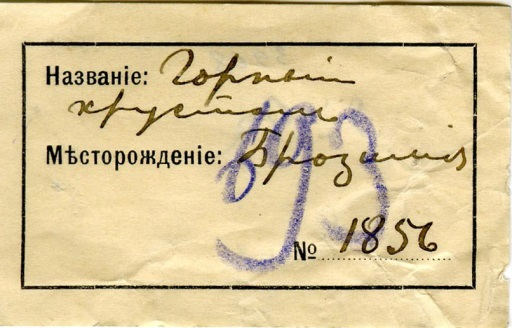 Названіе: Горный
хрусталь
Мѣсторожденіе: Бразилія
№ 1856